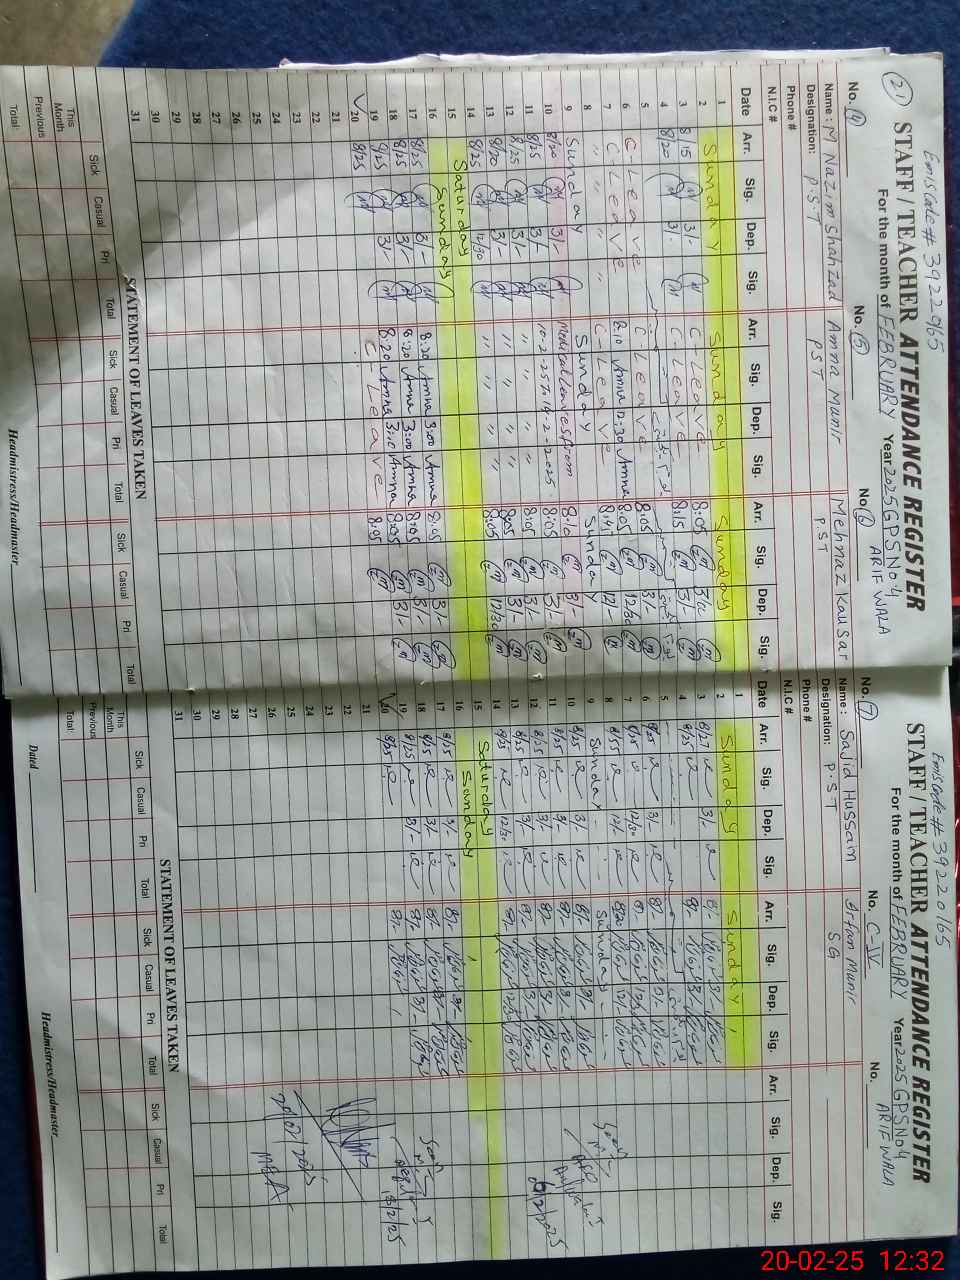 21
Emiscode # 39220165
STAFF / TEACHER ATTENDANCE REGISTER
For the month of FEBRUARY Year 2025 GPS No 4
ARIF WALA
No. 4 No. 5 No 6
Name : M Nazim Shahzad Amna Munir Mehnaz Kausar
Designation: P.S.T PST P.ST
Phone #
N.I.C #
Date Arr. Sig. Dep. Sig. Arr. Sig. Dep. Sig. Arr. Sig. Dep. Sig.
1
2 Sunday Sunday Sunday
3 8/15 3/- C-Leave 8:05
4 8/20 3/- C-Leave 8:15 3/-
5
6 C-Leave C-Leave 8:05 3/-
7 C-Leave 8:10 Amna 12:30 Amna 8:05 12/30
8 " " " C-Leave 8:47 12/-
9 Sunday Sunday Sunday
10 8/20 3/- Medical leave from 8:10 3/-
11 8/25 3/- 10-2-25 To 14-2-2025 8:05 3/-
12 8/25 3/- " " " 8:05 3/-
13 8/20 3/- " " " 8:05 3/-
14 8/25 12/30 " " " 8:05 12/30
15 Saturday
16 Sunday
17 8/25 3/- 8:20 Amna 3:00 Amna 8:05 3/-
18 8/25 3/- 8:20 Amna 3:00 Amna 8:05 3/-
19 8/25 3/- 8:20 Amna 3:10 Amna 8:05 3/-
20 8/25 C-Leave 8:05
21
22
23
24
25
26
27
28
29
30
31
STATEMENT OF LEAVES TAKEN
Sick Casual Pri Total Sick Casual Pri Total Sick Casual Pri Total
This Month
Previous
Total:
Headmistress/Headmaster
Emiscode # 39220165
STAFF / TEACHER ATTENDANCE REGISTER
For the month of FEBRUARY Year 2025 GPS No 4
ARIF WALA
No. 7 No. C-IV No.
Name : Sajid Hussain Irfan Munir
Designation: P.S.T SG
Phone #
N.I.C #
Date Arr. Sig. Dep. Sig. Arr. Sig. Dep. Sig. Arr. Sig. Dep. Sig.
1
2 Sunday Sunday
3 8/27 3/- 8/- 3/-
4 8/25 8/- 3/-
5
6 8/25 3/- 8/- 3/-
7 8/25 12/30 8/-
8 8/55 12/- 8/20 12/-
9 Sunday Sunday
10 8/25 3/- 8/- 3/-
11 8/25 3/- 8/- 3/-
12 8/25 3/- 8/- 3/-
13 8/25 3/- 8/- 3/-
14 8/25 12/30 8/-
15 Saturday
16 Sunday
17 8/25 3/- 8/- 3/-
18 8/25 3/- 8/- 3/-
19 8/25 3/- 8/- 3/-
20 8/25 8/-
21
22
23
24
25
26
27
28
29
30
31
Seen
Seen
13/2/25
20/02/2025
MEA
STATEMENT OF LEAVES TAKEN
Sick Casual Pri Total Sick Casual Pri Total Sick Casual Pri Total
This Month
Previous
Total:
Dated Headmistress/Headmaster
20-02-25 12:32